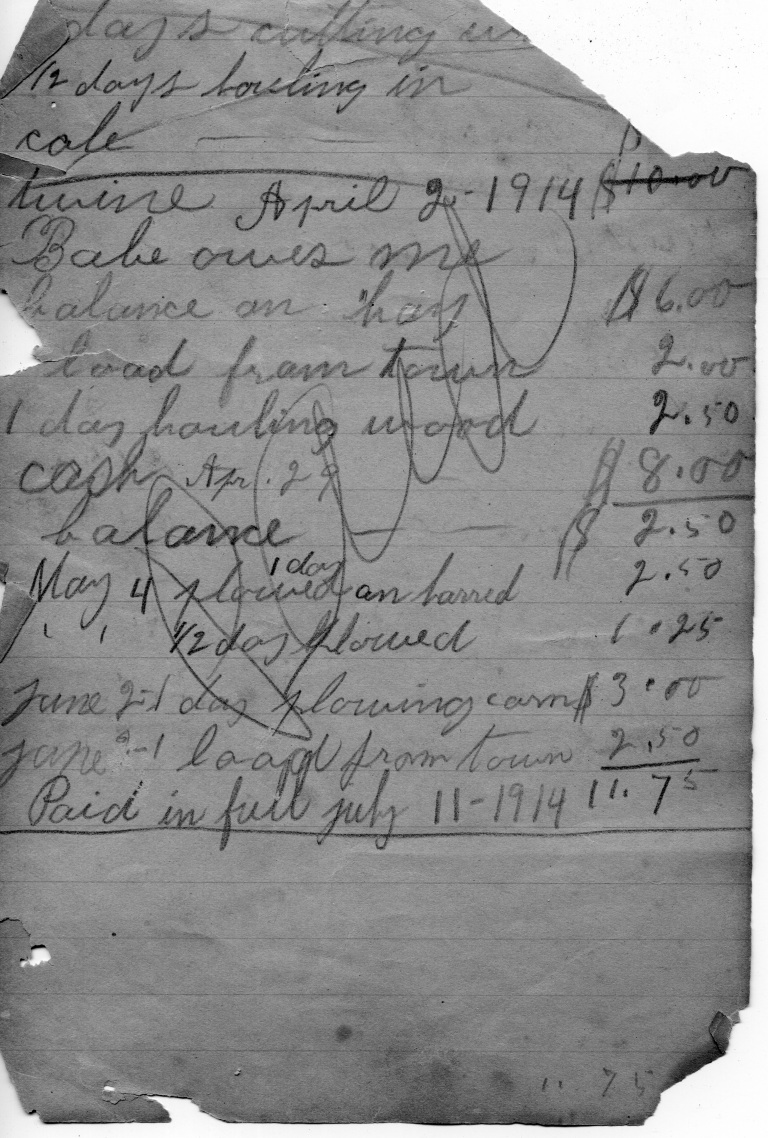 days cutting
1/2 days houling in
cale — —
twine April 2-1914 $10.00
Babe owes me
balance on hay $6.00
load from town 2.00
1 day houling wood 2.50
cash Apr. 29 $8.00
balance — — $ 2.50
May 4 plowed 1 day an harred 2.50
" " 1/2 day plowed 1.25
june 2-1 day plowing corn $3.00
june 2-1 load from town 2.50
Paid in full july 11-1914 11.75
11 75